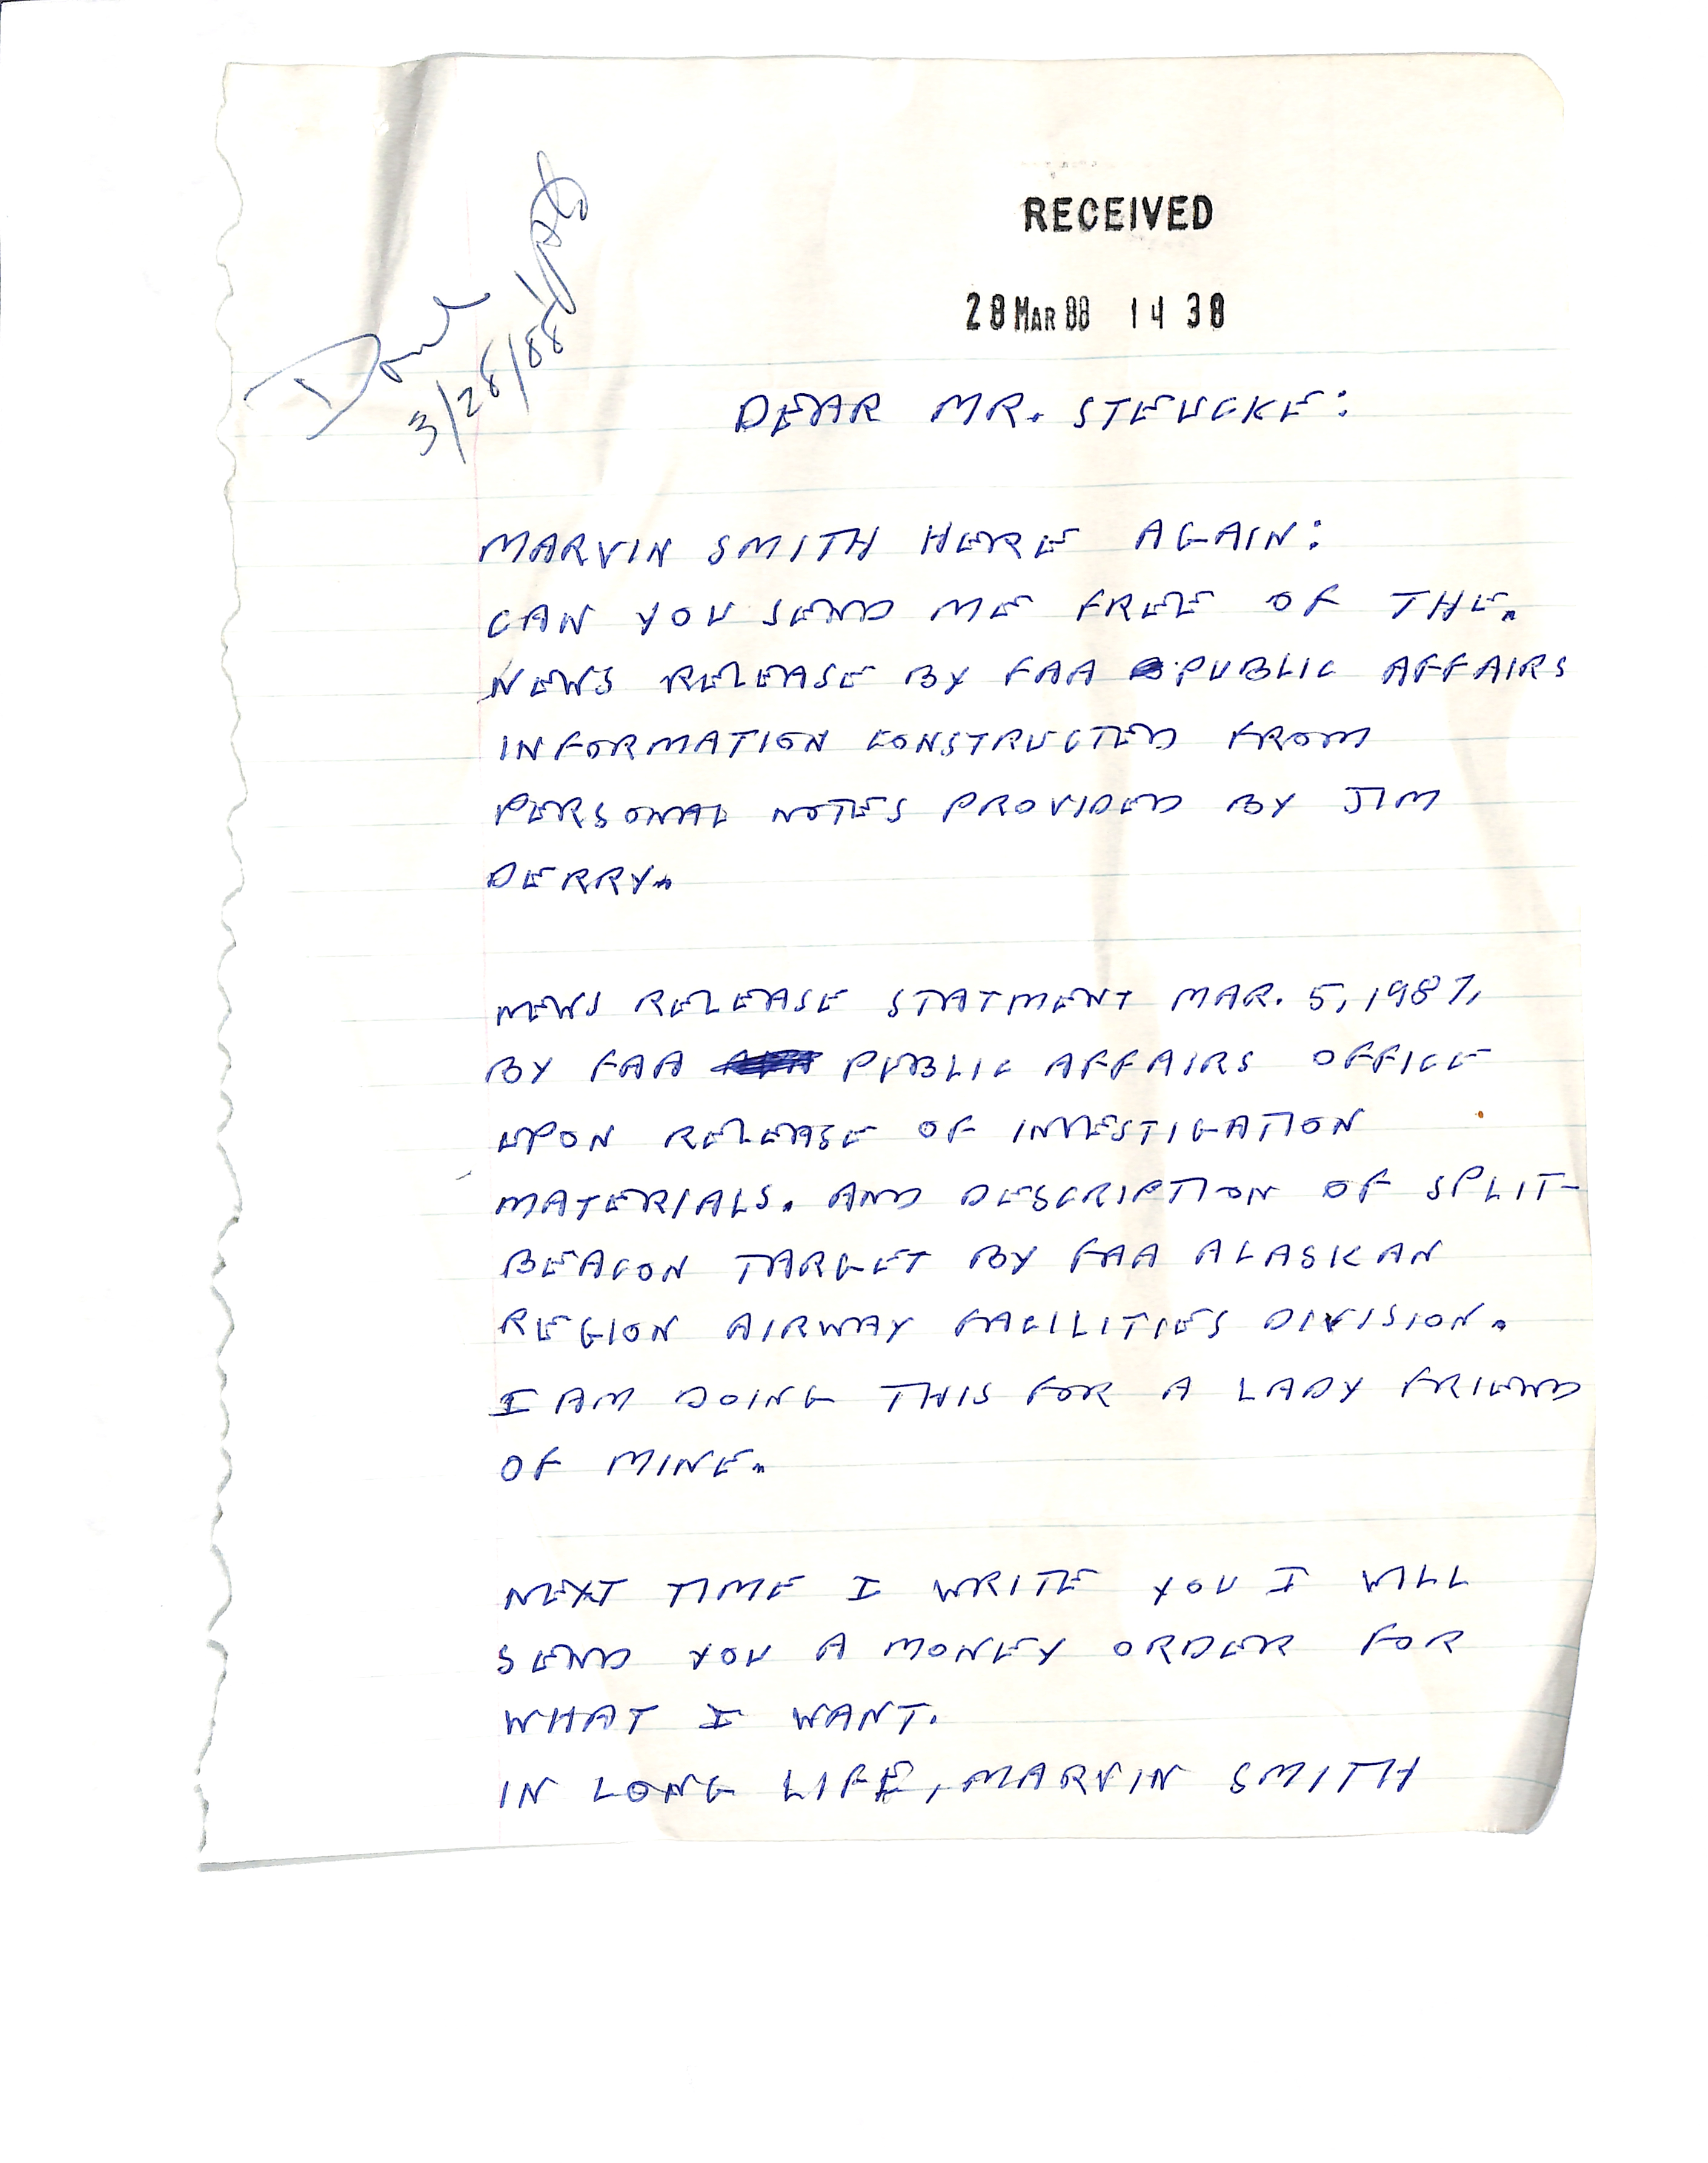 RECEIVED
28 MAR 88 14 38
Done
3/28/88
DEAR MR. STEUCKE:
MARVIN SMITH HERE AGAIN:
CAN YOU SEND ME FREE OF THE.
NEWS RELEASE BY FAA PUBLIC AFFAIRS
INFORMATION CONSTRUCTED FROM
PERSONAL NOTES PROVIDED BY JIM
DERRY.
NEWS RELEASE STATMENT MAR. 5, 1987,
BY FAA PUBLIC AFFAIRS OFFICE
UPON RELEASE OF INVESTIGATION
MATERIALS. AND DESCRIPTION OF SPLIT-
BEACON TARGET BY FAA ALASKAN
REGION AIRWAY FACILITIES DIVISION.
I AM DOING THIS FOR A LADY FRIEND
OF MINE.
NEXT TIME I WRITE YOU I WILL
SEND YOU A MONEY ORDER FOR
WHAT I WANT.
IN LONG LIFE, MARVIN SMITH